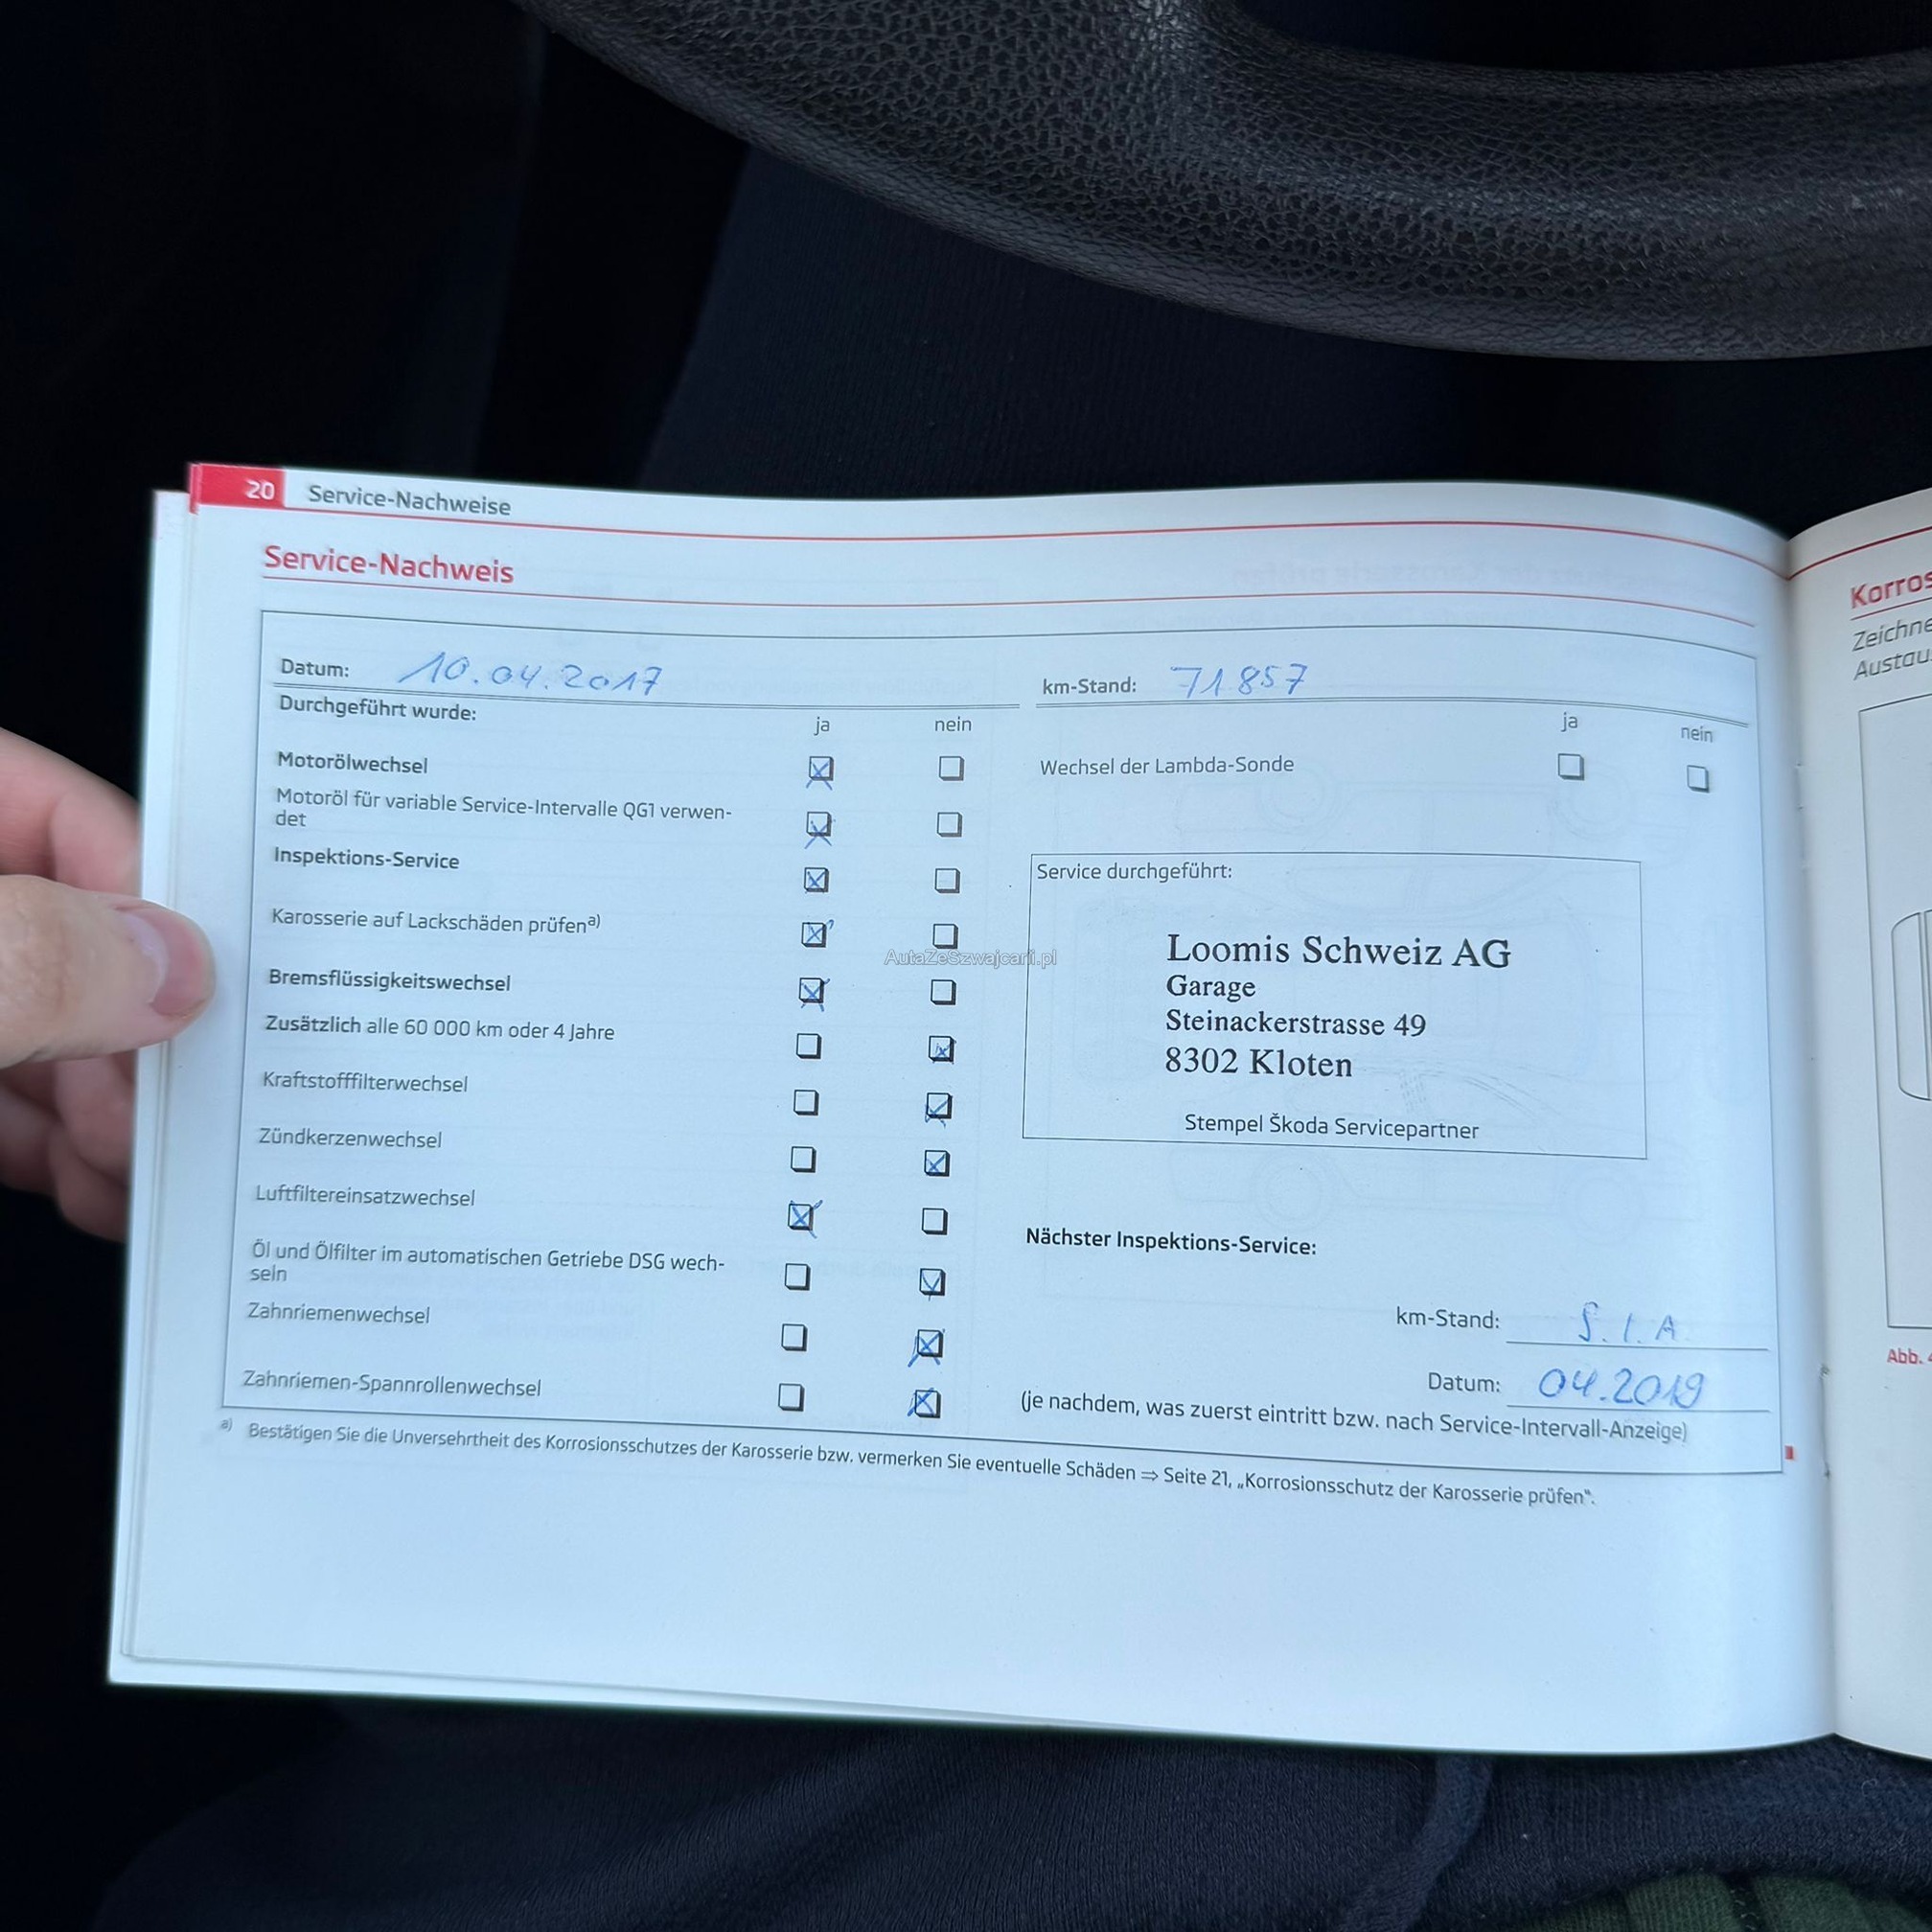 20 Service-Nachweise
Service-Nachweis
Datum: 10.04.2017
km-Stand: 71857
Durchgeführt wurde:
ja nein
ja nein
Motorölwechsel
Wechsel der Lambda-Sonde
Motoröl für variable Service-Intervalle QG1 verwen-
det
Inspektions-Service
Karosserie auf Lackschäden prüfena)
Bremsflüssigkeitswechsel
Zusätzlich alle 60 000 km oder 4 Jahre
Kraftstofffilterwechsel
Zündkerzenwechsel
Luftfiltereinsatzwechsel
Öl und Ölfilter im automatischen Getriebe DSG wech-
seln
Zahnriemenwechsel
Zahnriemen-Spannrollenwechsel
Service durchgeführt:
Loomis Schweiz AG
Garage
Steinackerstrasse 49
8302 Kloten
Stempel Škoda Servicepartner
Nächster Inspektions-Service:
km-Stand: S.I.A
Datum: 04.2019
(je nachdem, was zuerst eintritt bzw. nach Service-Intervall-Anzeige)
a) Bestätigen Sie die Unversehrtheit des Korrosionsschutzes der Karosserie bzw. vermerken Sie eventuelle Schäden ⇒ Seite 21, „Korrosionsschutz der Karosserie prüfen“.
AutaZeSzwajcarii.pl
Korros
Zeichne
Austau
Abb.